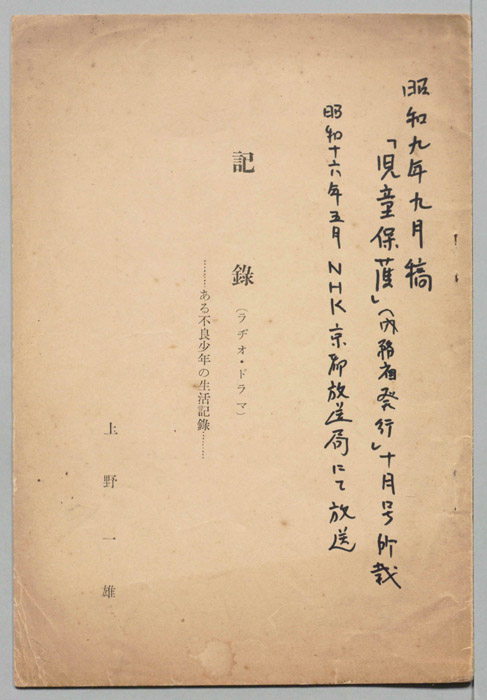 昭和九年九月稿
「児童保護」(内務省発行)十月号所載
昭和十六年五月NHK京都放送局にて放送
記錄
(ラヂオ・ドラマ)
………ある不良少年の生活記錄………
上野一雄